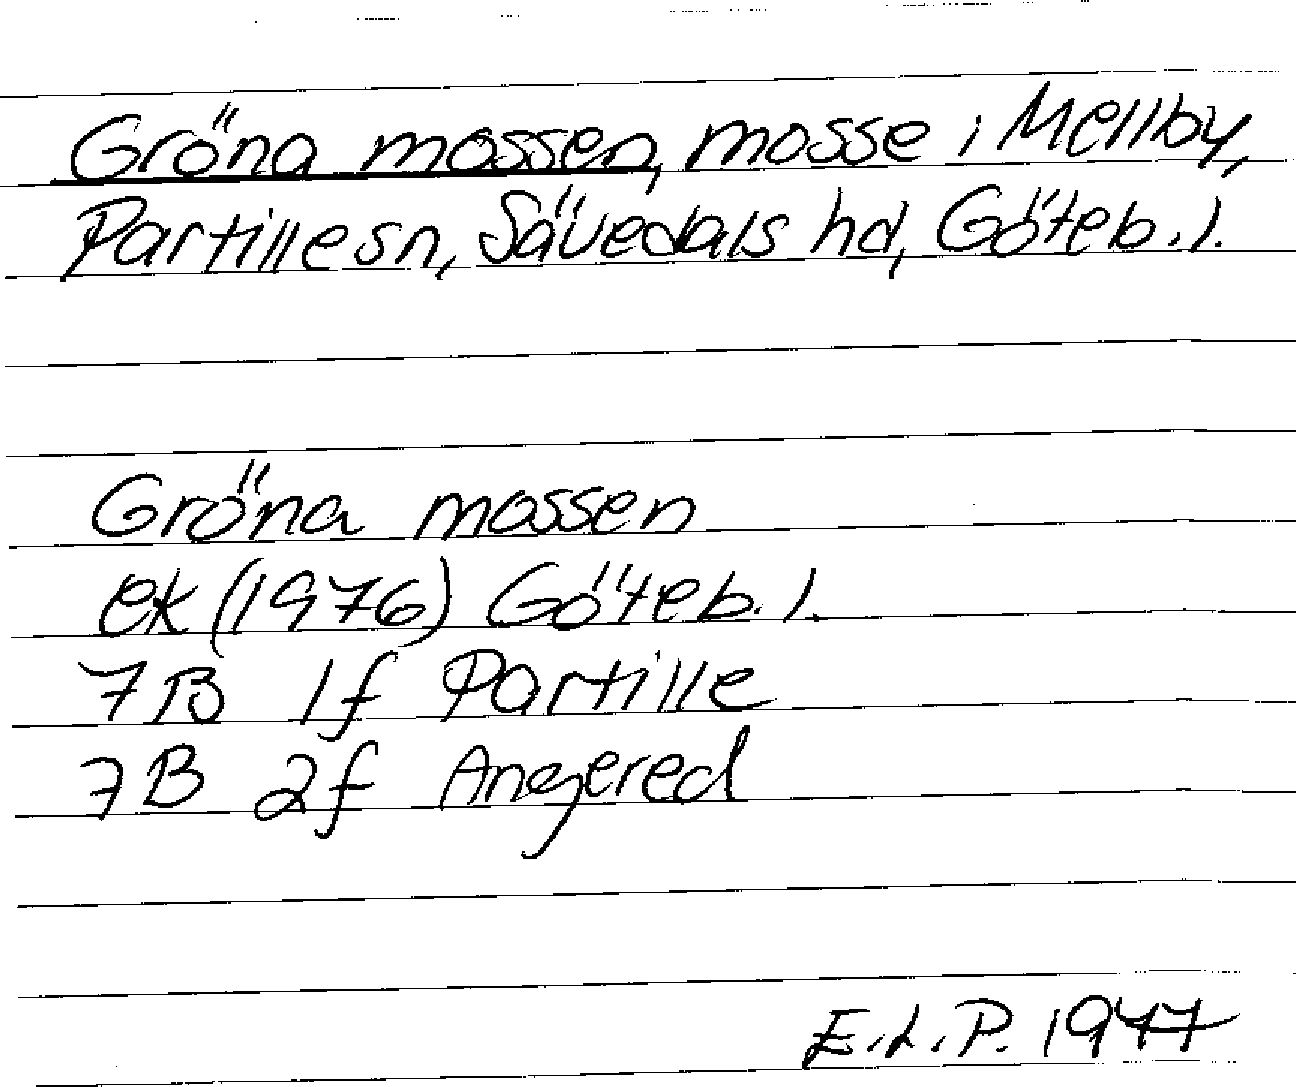 Gröna mossen, mosse i Mellby,
Partille sn, Sävedals hd, Göteb. l.
Gröna mossen
ek (1976) Göteb. l.
7B 1f Partille
7B 2f Angered
E.L.P. 1977